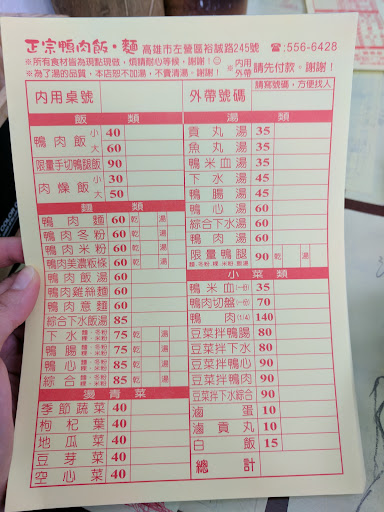 正宗鴨肉飯・麵 高雄市左營區裕誠路245號 ☎:556-6428
※所有食材皆為現點現做，煩請耐心等候，謝謝！☺
※為了湯的品質，本店恕不加湯，不賣清湯。謝謝！
※內用外帶請先付款。謝謝！
內用桌號
外帶號碼 請寫號碼，方便找人
飯類
鴨肉飯 小 40
大 60
限量手切鴨腿飯 90
肉燥飯 小 30
大 50
麵類
鴨肉麵 60 乾 湯
鴨肉冬粉 60 乾 湯
鴨肉米粉 60 乾 湯
鴨肉美濃粄條 60 乾 湯
鴨肉飯湯 60
鴨肉雞絲麵 60
鴨肉意麵 60
綜合下水飯湯 85
下水 麵・冬粉 粿・米粉 75 乾 湯
鴨腸 麵・冬粉 粿・米粉 75 乾 湯
鴨心 麵・冬粉 粿・米粉 85 乾 湯
綜合 麵・冬粉 粿・米粉 85 乾 湯
燙青菜
季節蔬菜 40
枸杞葉 40
地瓜菜 40
豆芽菜 40
空心菜 40
湯類
貢丸湯 35
魚丸湯 35
鴨米血湯 35
下水湯 45
鴨腸湯 45
鴨心湯 60
綜合下水湯 60
鴨肉湯 60
限量鴨腿 90 乾 湯
小菜類
鴨米血(一份) 35
鴨肉切盤(一份) 70
鴨肉(1/4) 140
豆菜拌鴨腸 80
豆菜拌下水 80
豆菜拌鴨心 90
豆菜拌鴨肉 90
豆菜拌下水綜合 90
滷蛋 10
滷貢丸 10
白飯 15
總計